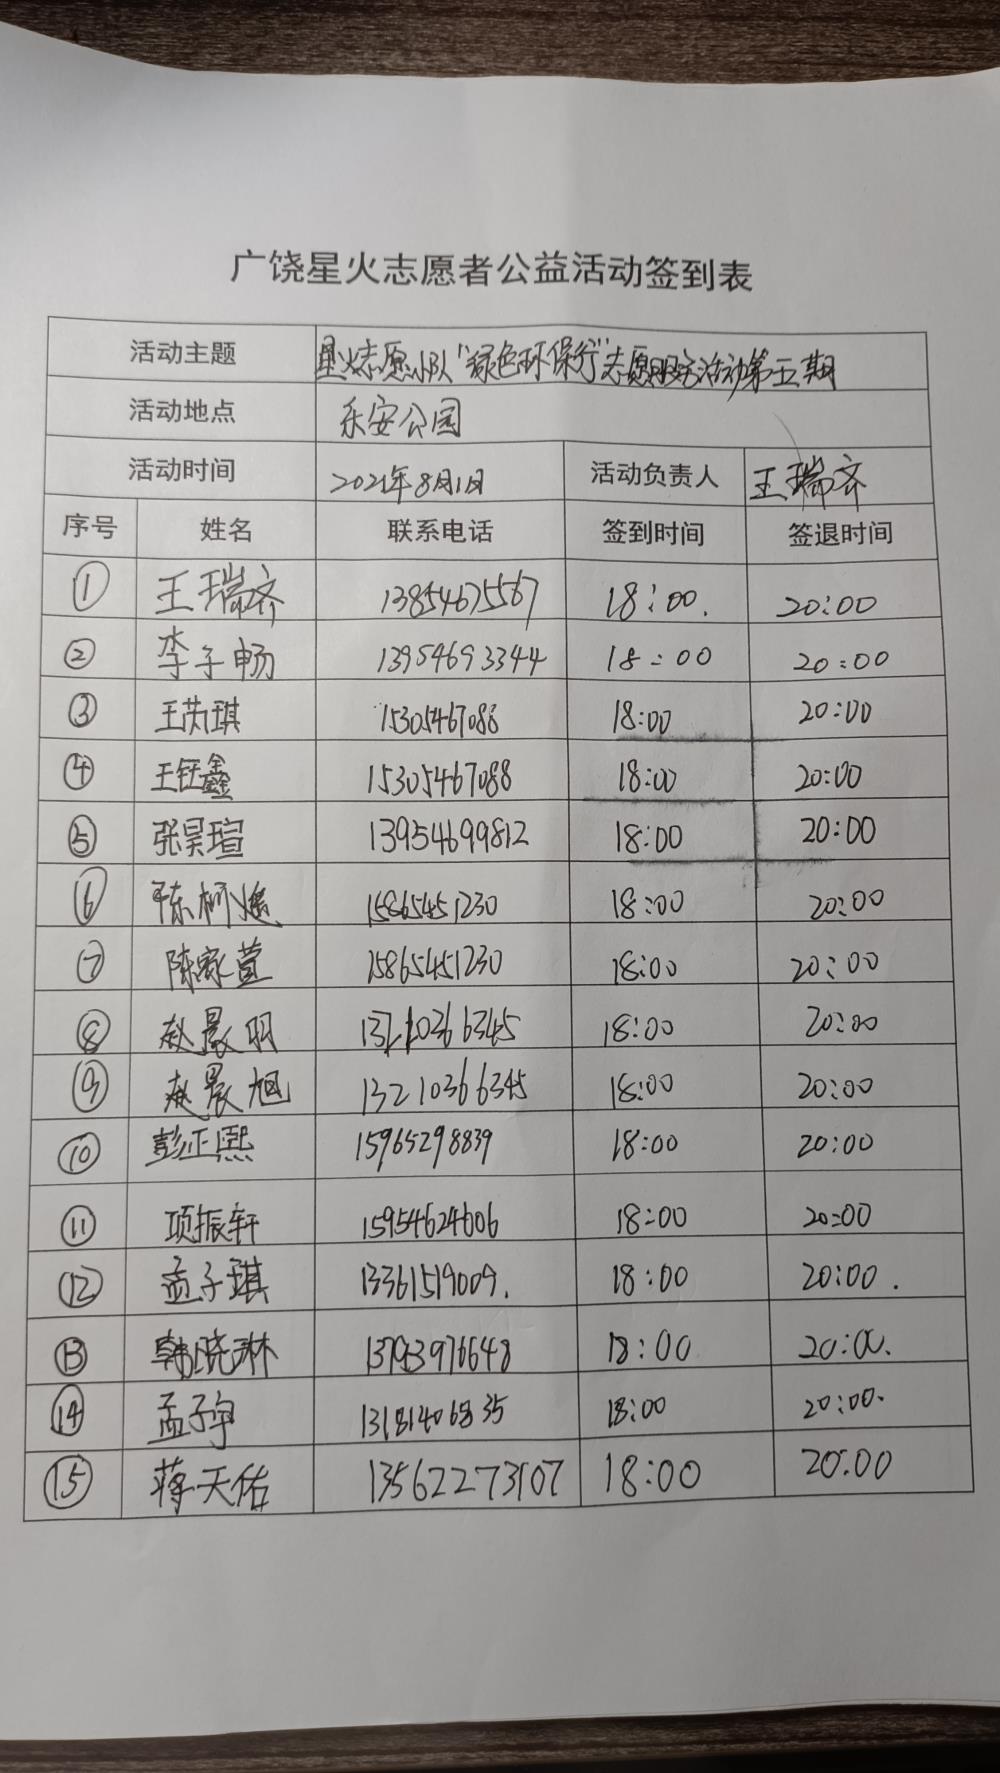 广饶星火志愿者公益活动签到表
活动主题 星火志愿小队“绿色环保行”志愿服务活动第五期
活动地点 乐安公园
活动时间 2021年8月1日 活动负责人 王瑞齐
序号 姓名 联系电话 签到时间 签退时间
① 王瑞齐 13854675567 18:00. 20:00
② 李子畅 13954693344 18:00 20:00
③ 王芮琪 15305467088 18:00 20:00
④ 王钰鑫 15305467088 18:00 20:00
⑤ 张昊瑄 13954699812 18:00 20:00
⑥ 陈柯 15865451230 18:00 20:00
⑦ 陈家萱 15865451230 18:00 20:00
⑧ 赵晨明 13210366345 18:00 20:00
⑨ 赵晨旭 13210366345 18:00 20:00
⑩ 彭正熙 15965298839 18:00 20:00
⑪ 项振轩 15954624606 18:00 20:00
⑫ 孟子琪 13361519009. 18:00 20:00.
⑬ 韩晓琳 13793976648 18:00 20:00.
⑭ 孟子宇 13181406835 18:00 20:00.
⑮ 蒋天佑 13562273107 18:00 20:00